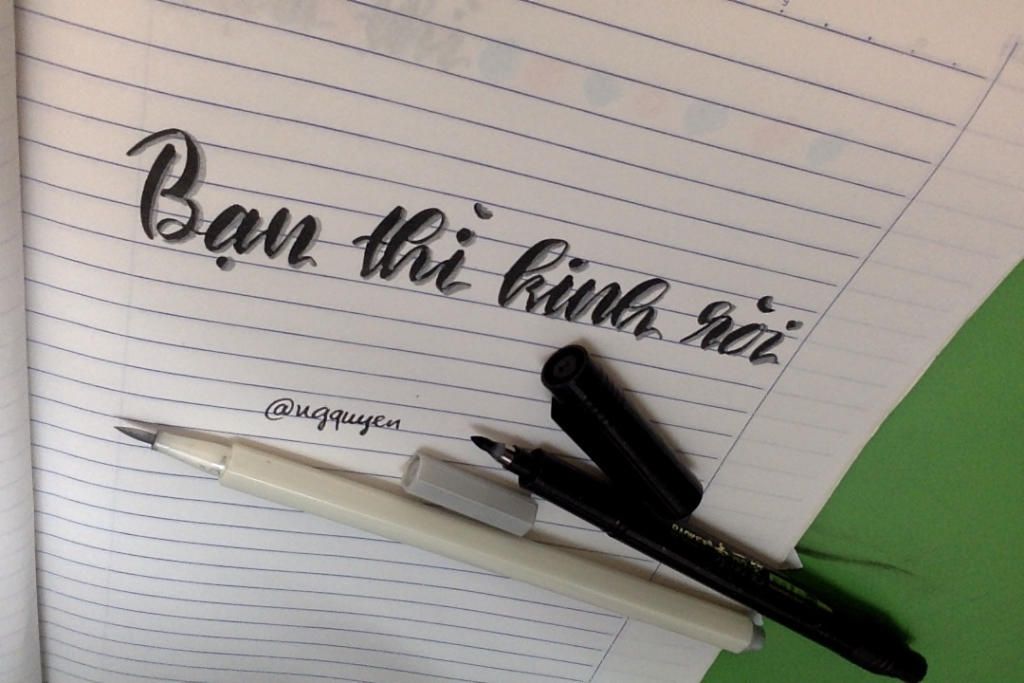 Bạn thì kinh ròi
@ngquyen